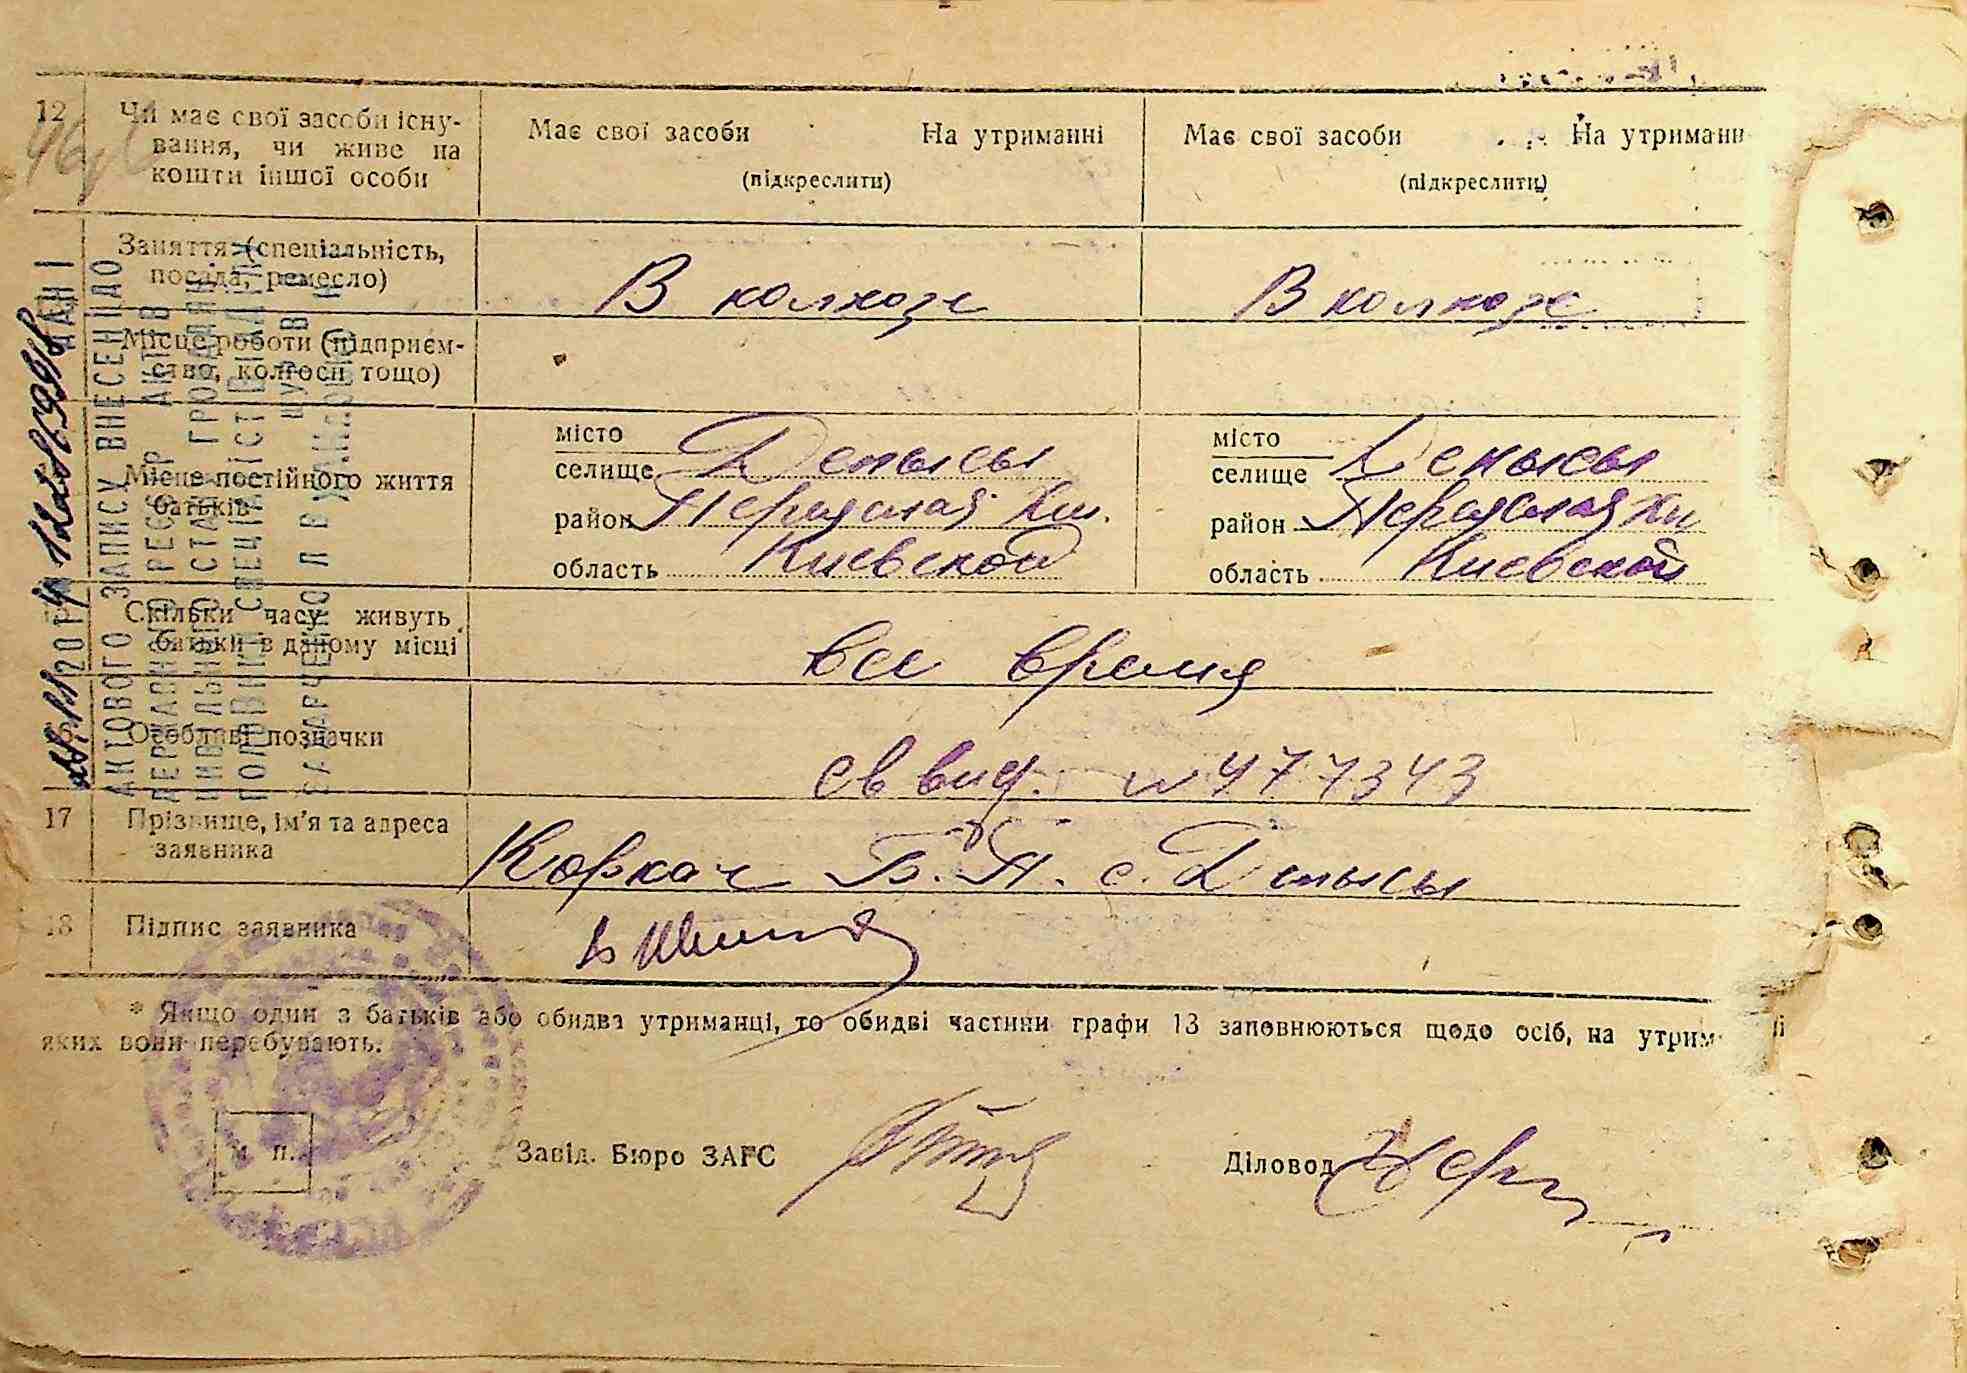 12 Чи має свої засоби існу-
вання, чи живе на
кошти іншої особи
Має свої засоби На утриманні
(підкреслити)
Має свої засоби На утриманн
(підкреслити)
Заняття (спеціальність,
посада, ремесло)
В колхозе
В колхозе
Місце роботи (підприєм-
ство, колгосп тощо)
Місце постійного життя
батьків
місто
селище Денысы
район Переяслав Хм.
область Киевской
місто
селище Денысы
район Переяслав Хм
область Киевской
Скільки часу живуть
батьки в даному місці
все время
Особливі позначки
св вид. № 477343
17 Прізвище, ім'я та адреса
заявника
Коркач В. П. с. Денысы
18 Підпис заявника
* Якщо один з батьків або обидва утриманці, то обидві частини графи 13 заповнюються щодо осіб, на утрим
яких вони перебувають.
М. П.
Завід. Бюро ЗАГС
Діловод
ДАНІ
АКТОВОГО ЗАПИСУ ВНЕСЕНІ ДО
ДЕРЖАВНОГО РЕЄСТР АКТІВ
ЦИВІЛЬНОГО СТАНУ ГРОМАДЯН
ГОЛОВНИЙ СПЕЦІАЛІСТ ВІДДІЛУ